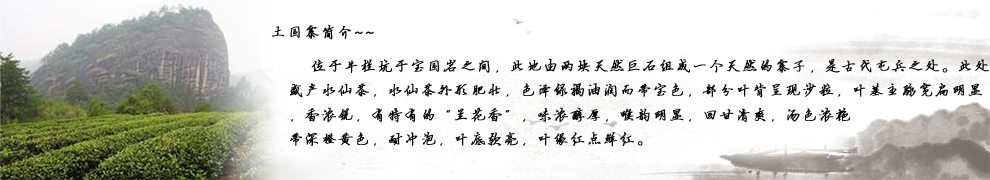 土国寨简介~~
位于半栏坑于宝国岩之间，此地由两块天然巨石组成一个天然的寨子，是古代屯兵之处。此处
盛产水仙茶，水仙茶外形肥壮，色泽绿褐油润而带宝色，部分叶背呈现沙粒，叶基主脉宽扁明显
，香浓锐，有特有的“兰花香”，味浓醇厚，喉韵明显，回甘清爽，汤色浓艳
带深橙黄色，耐冲泡，叶底软亮，叶缘红点鲜红。